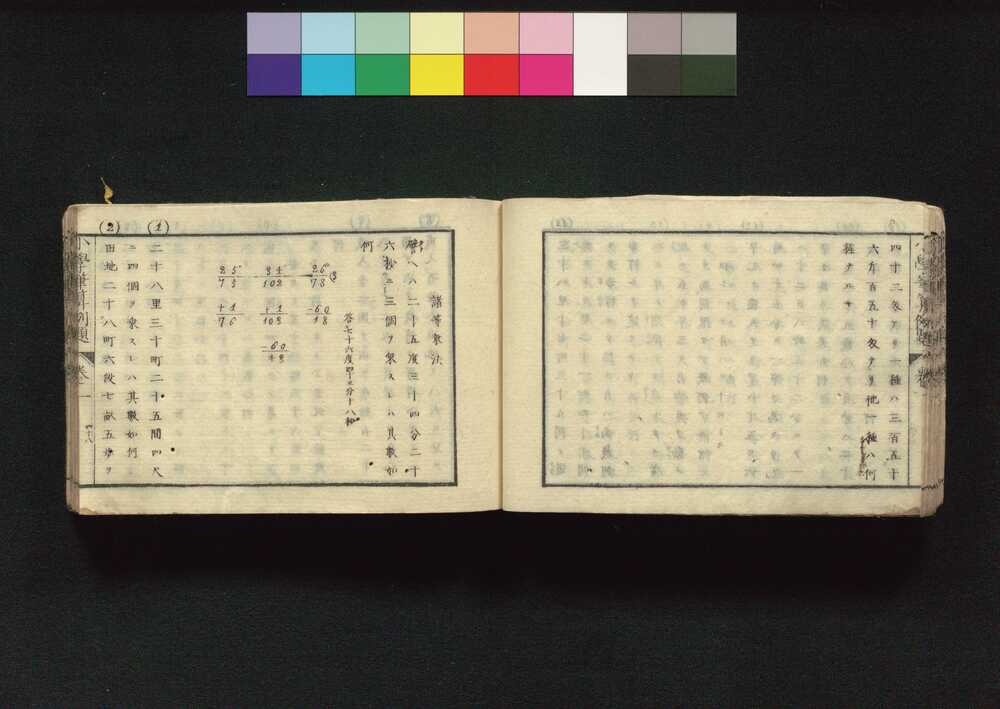 四十二匁ナリ一種ハ三百五十
六匁百五十匁ナリ他ノ一種ハ何
種ナルヤ
諸等乗法
譬ヘハ二十五度三十四分二十
六秒ニ三個ヲ乗スレハ其數如
何
25 34 26 (3
75 102 78
+1 +1 -60
76 103 18
-60
43
答七十六度四十三分十八秒
(1)
二十八里三十町二十五間四尺
ニ四個ヲ乗スレハ其數如何
(2)
田地二十八町六段七畝五歩ヲ
小學筆算例題 卷 一
四十八